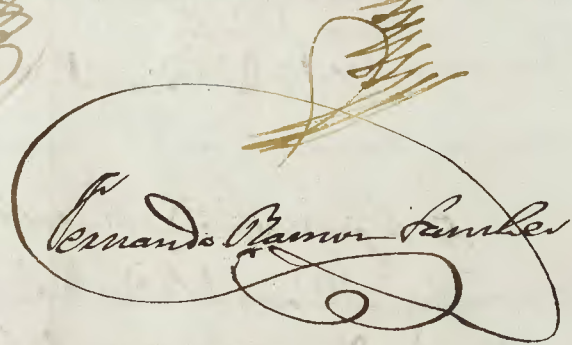 Fernando Ramon Sanchez